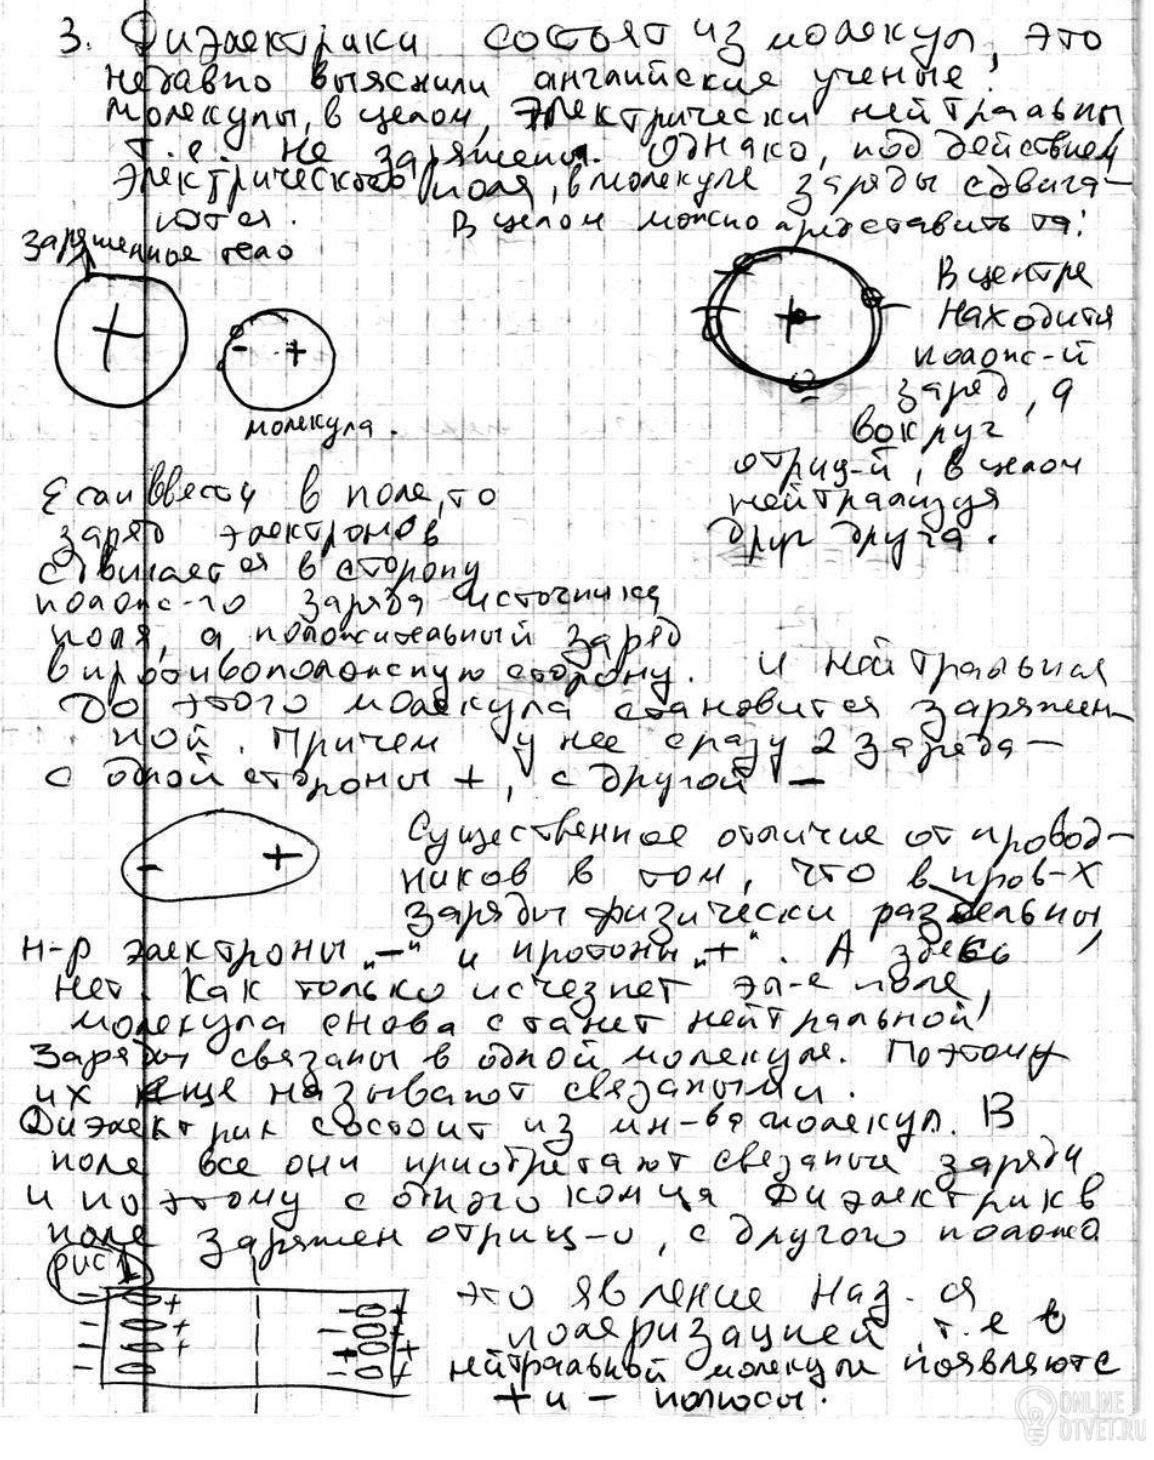 3. Диэлектрики состоят из молекул, это
недавно выяснили английские ученые.
Молекулы, в целом, электрически нейтральны,
т.е. не заряжены. Однако, под действием
электрического поля, в молекуле заряды сдвига-
ются.
В целом можно представить та:
заряженное тело
+
- +
молекула.
+
В центре
находится
полож-й
заряд, а
вокруг
отриц-й, в целом
нейтрализуя
друг друга.
Если ввести в поле, то
заряд электронов
сдвигается в сторону
полож-го заряда источника
поля, а положительный заряд
в противоположную сторону. И нейтральная
до этого молекула становится заряжен-
ной. Причем у нее сразу 2 заряда -
с одной стороны +, с другой -
- +
Существенное отличие от провод-
ников в том, что в пров-х
заряды физически раздельны,
н-р электроны „-" и протоны „+". А здесь
нет. Как только исчезнет эл-е поле,
молекула снова станет нейтральной!
Заряды связаны в одной молекуле. Поэтому
их еще называют связаными.
Диэлектрик состоит из мн-ва молекул. В
поле все они приобретают связаные заряды
и поэтому с одного конца диэлектрик в
поле заряжен отриц-о, с другого полож
рис 1
- + - +
- + - +
- + + +
- - +
это явление наз-ся
поляризацией т.е в
нейтральной молекуле появляютс
+ и - полюсы.
ONLINE
OTVET.RU